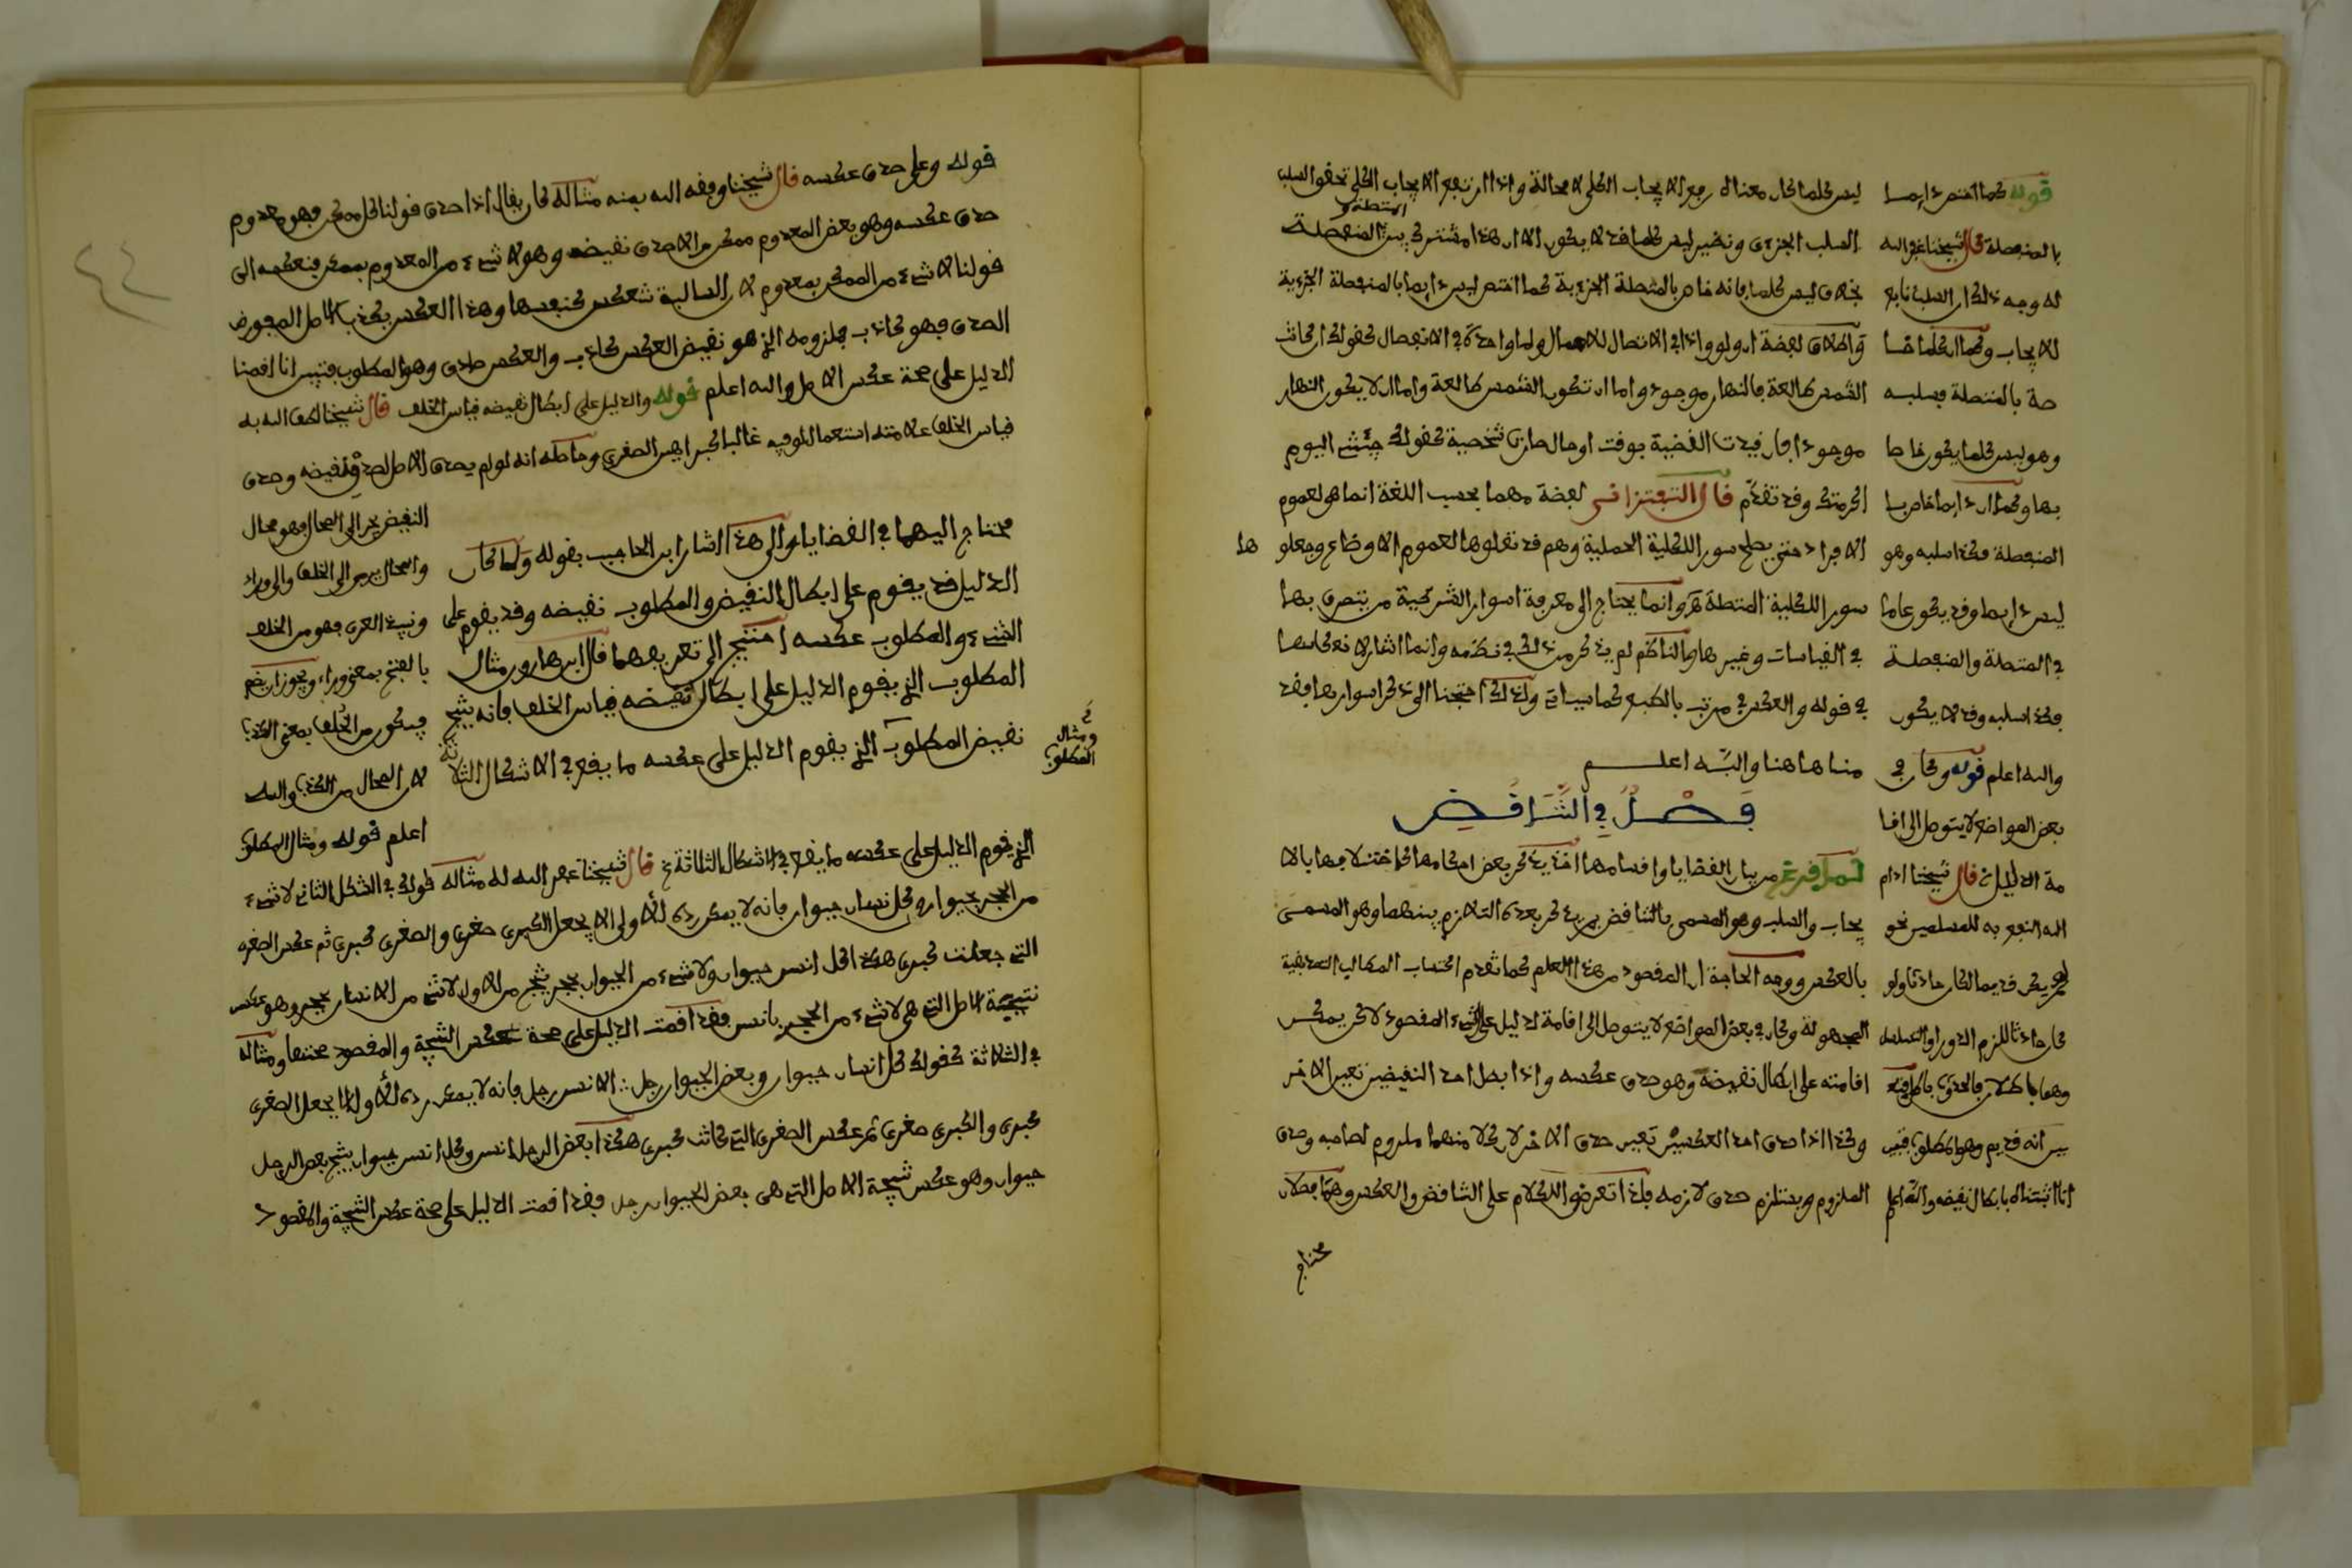 ليس كلما كان معناه رفع الايجاب الكلي لا محالة واذا ارتفع الايجاب الكلي تحقق السلب
المتصلة و
السلب الجزءي ونظير ليس كلما قد لا يكون الا ان هذا مشترك بين المنفصلة
بخلاف ليس كلما فانه خاص بالمتصلة الجزءية كما اختص ليس دايما بالمنفصلة الجزءية
واطلاق لفظة ان ولو واذا في الاتصال للاهمال واما واحدة في الانفصال كقولك ان كانت
الشمس طالعة فالنهار موجود واما ان تكون الشمس طالعة واما ان لا يكون النهار
موجودا فان قيدت القضية بوقت او حال صارت شخصية كقولك جئتني اليوم
اكرمتك وقد تقدم قال التفتزاني لفظة مهما بحسب اللغة انما هو لعموم
الافراد حتى يصلح سور الكلية الحملية وهم قد نقلوها لعموم الاوضاع وجعلوها
سور الكلية المتصلة وانما يحتاج الى معرفة اسوار الشرطية من يتصرف بها
في القياسات وغيرها والناظم لم يذكر من ذلك في نظمه وانما اشار لانعكاسها
في قوله والعكس في مرتب بالطبع كما سياتي ولذلك احتجنا الى ذكر اسوارها فقد
مناها هنا والله اعلم
فصل في التناقض
لما فرغ من بيان القضايا واقسامها اخذ يذكر بعض احكامها كاختلافها بالا
يجاب والسلب وهو المسمى بالتناقض ثم يذكر بعده التلازم بينهما وهو المسمى
بالعكس ووجه الحاجة ان المقصود من هذا العلم كما تقدم اكتساب المطالب التصديقية
المجهولة وكان في بعض المواضع لا يتوصل الى اقامة الدليل على الشيء المقصود لاكن يمكن
اقامته على ابطال نقيضه وهو صدق عكسه واذا بطل احد النقيضين تعين الاخر
وكذا اذا صدق احد العكسين تعين صدق الاخر لان كلا منهما ملزوم لصاحبه وصدق
الملزوم يستلزم صدق لازمه فلذا تعرضوا للكلام على التناقض والعكس وهما فصلان
محتاج
قوله كما اختص دايما
بالمنفصلة قال شيخنا غفر الله
له وجه ذلك ان السلب تابع
للايجاب وكما ان كلما خا
صة بالمتصلة فسلبه
وهو ليس كلما يكون خاصا
بها وكما ان دايما خاص با
المنفصلة فكذا سلبه وهو
ليس دايما وقد يكون عاما
في المتصلة والمنفصلة
فكذا سلبه وقد لا يكون
والله اعلم قوله وكان في
بعض المواضع لا يتوصل الى اقا
مة الدليل قال شيخنا ادام
الله النفع به للمسلمين نحو
لم يكن قديما لكان حادثا ولو
كان حادثا للزم الدور او التسلسل
وهما باطلان
انه قديم وهو المطلوب
انا اثبتناه بابطال نقيضه والله اعلم
قوله وعلى صدق عكسه قال شيخنا وفقه الله بمنه مثاله كان يقال اذا صدق قولنا كل ممكن فهو معدوم
صدق عكسه وهو بعض المعدوم ممكن والا صدق نقيضه وهو لا شيء من المعدوم بممكن فنعكسه الى
قولنا لا شيء من الممكن بمعدوم لان السالبة تنعكس كنفسها وهذا العكس يكذب الاصل المفروض
الصدق فهو كاذب فملزومه الذي هو نقيض العكس كاذب والعكس صادق وهو المطلوب فتبين انا اقمنا
الدليل على صحة عكس الاصل والله اعلم قوله والدليل على ابطال نقيضه قياس الخلف قال شيخنا لطف الله به
قياس الخلف علامته استعمال لو فيه غالبا كبرا هيس الصغرى وحاصله انه لو لم يصدق الاصل لصدق نقيضه وصدق
النقيض يجر الى المحال فهو محال
والمحال يرمى الى الخلف والى وراء
بالفتح بمعنى وراء ويجوز ان يضم
فيكون من الخلف بمعنى الكذب
لان المحال من الكذب والله
اعلم قوله ومثال المطلوب
محتاج اليهما في القضايا والى هذا اشار ابن الحاجب بقوله ولما كان
الدليل قد يقوم على ابطال النقيض والمطلوب نقيضه وقد يقوم على
الشيء والمطلوب عكسه احتيج الى تعريفهما قال ابن هارون مثال
المطلوب الذي يقوم الدليل على ابطال نقيضه قياس الخلف فانه ينتج
نقيض المطلوب الذي يقوم الدليل على عكسه ما يقع في الاشكال الثلاثة
ومثال
المطلوب
الذي يقوم الدليل على عكسه ما يقع في الاشكال الثلاثة قال شيخنا غفر الله له مثاله قولك في الشكل الثاني لا شيء
من الحجر بحيوان وكل انسان حيوان فانه لا يمكن رده للاولى الا بجعل الكبرى صغرى والصغرى كبرى ثم عكس الصغرى
التي جعلت كبرى هكذا كل انسن حيوان ولا شيء من الحيوان بحجر ينتج من الاول لا شيء من الانسان بحجر وهو عكس
نتيجة الاصل التي هي لا شيء من الحجر بانسن فقد اقمت الدليل على صحة عكس النتيجة والمقصود عينها ومثاله
في الثالثة كقولك كل انسان حيوان وبعض الحيوان رجل الانسن رجل فانه لا يمكن رده للاول الا بجعل الصغرى
كبرى والكبرى صغرى ثم عكس الصغرى التي كانت كبرى هكذا بعض الرجل انسن وكل انسن حيوان ينتج بعض الرجل
حيوان وهو عكس نتيجة الاصل التي هي بعض الحيوان رجل فقد اقمت الدليل على صحة عكس النتيجة والمقصود